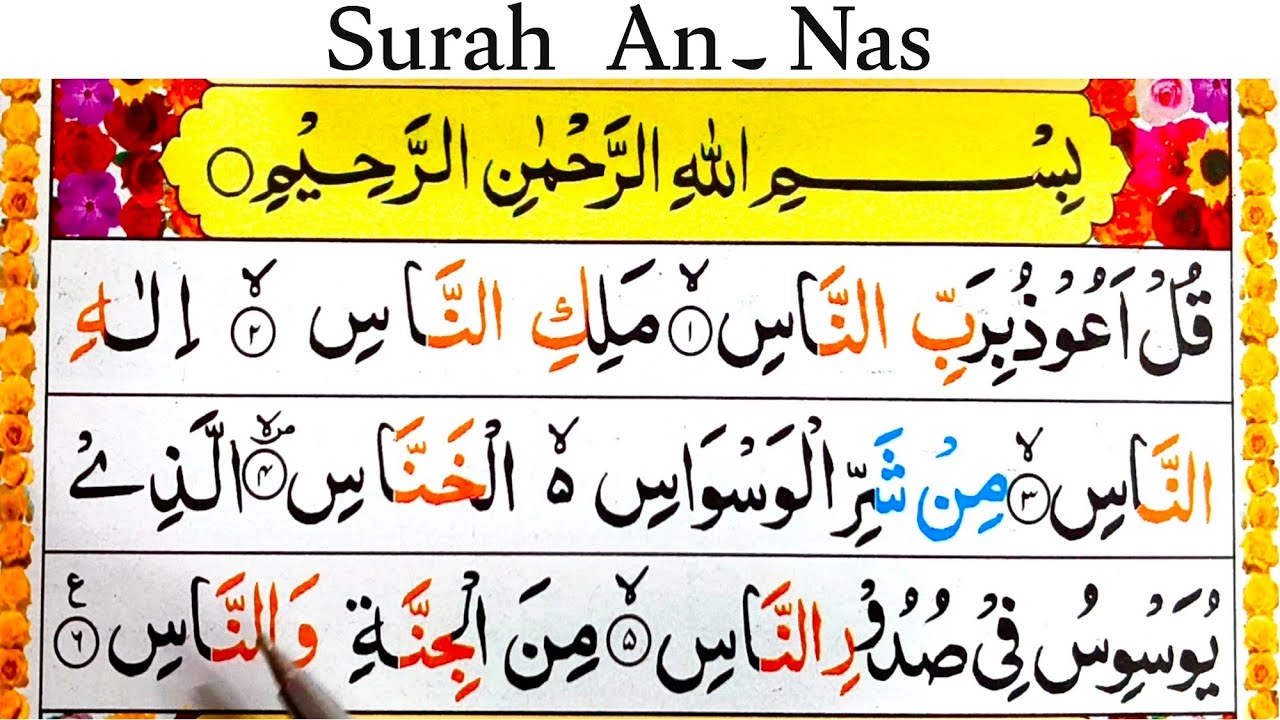 Surah An - Nas
بِسْمِ اللهِ الرَّحْمٰنِ الرَّحِيْمِ ۝
قُلْ اَعُوْذُ بِرَبِّ النَّاسِ ۙ﴿۱﴾ مَلِكِ النَّاسِ ۙ﴿۲﴾ اِلٰهِ
النَّاسِ ۙ﴿۳﴾ مِنْ شَرِّ الْوَسْوَاسِ ۬ۙ الْخَنَّاسِ ۪ۙ﴿۴﴾ الَّذِيْ
يُوَسْوِسُ فِيْ صُدُوْرِ النَّاسِ ۙ﴿۵﴾ مِنَ الْجِنَّةِ وَالنَّاسِ ﴿۶﴾ ع